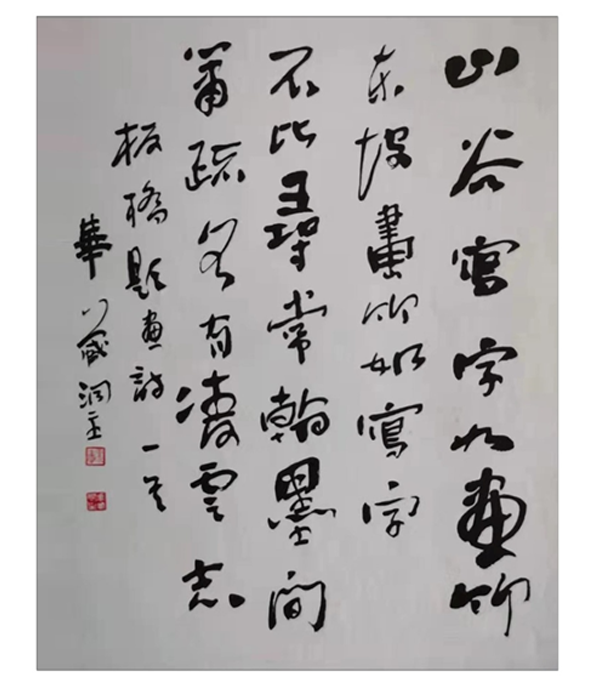 山谷寫字如畫竹
東坡畫竹如寫字
不比尋常翰墨間
蕭疏各有凌雲志
板橋題畫詩一首
華 洞主